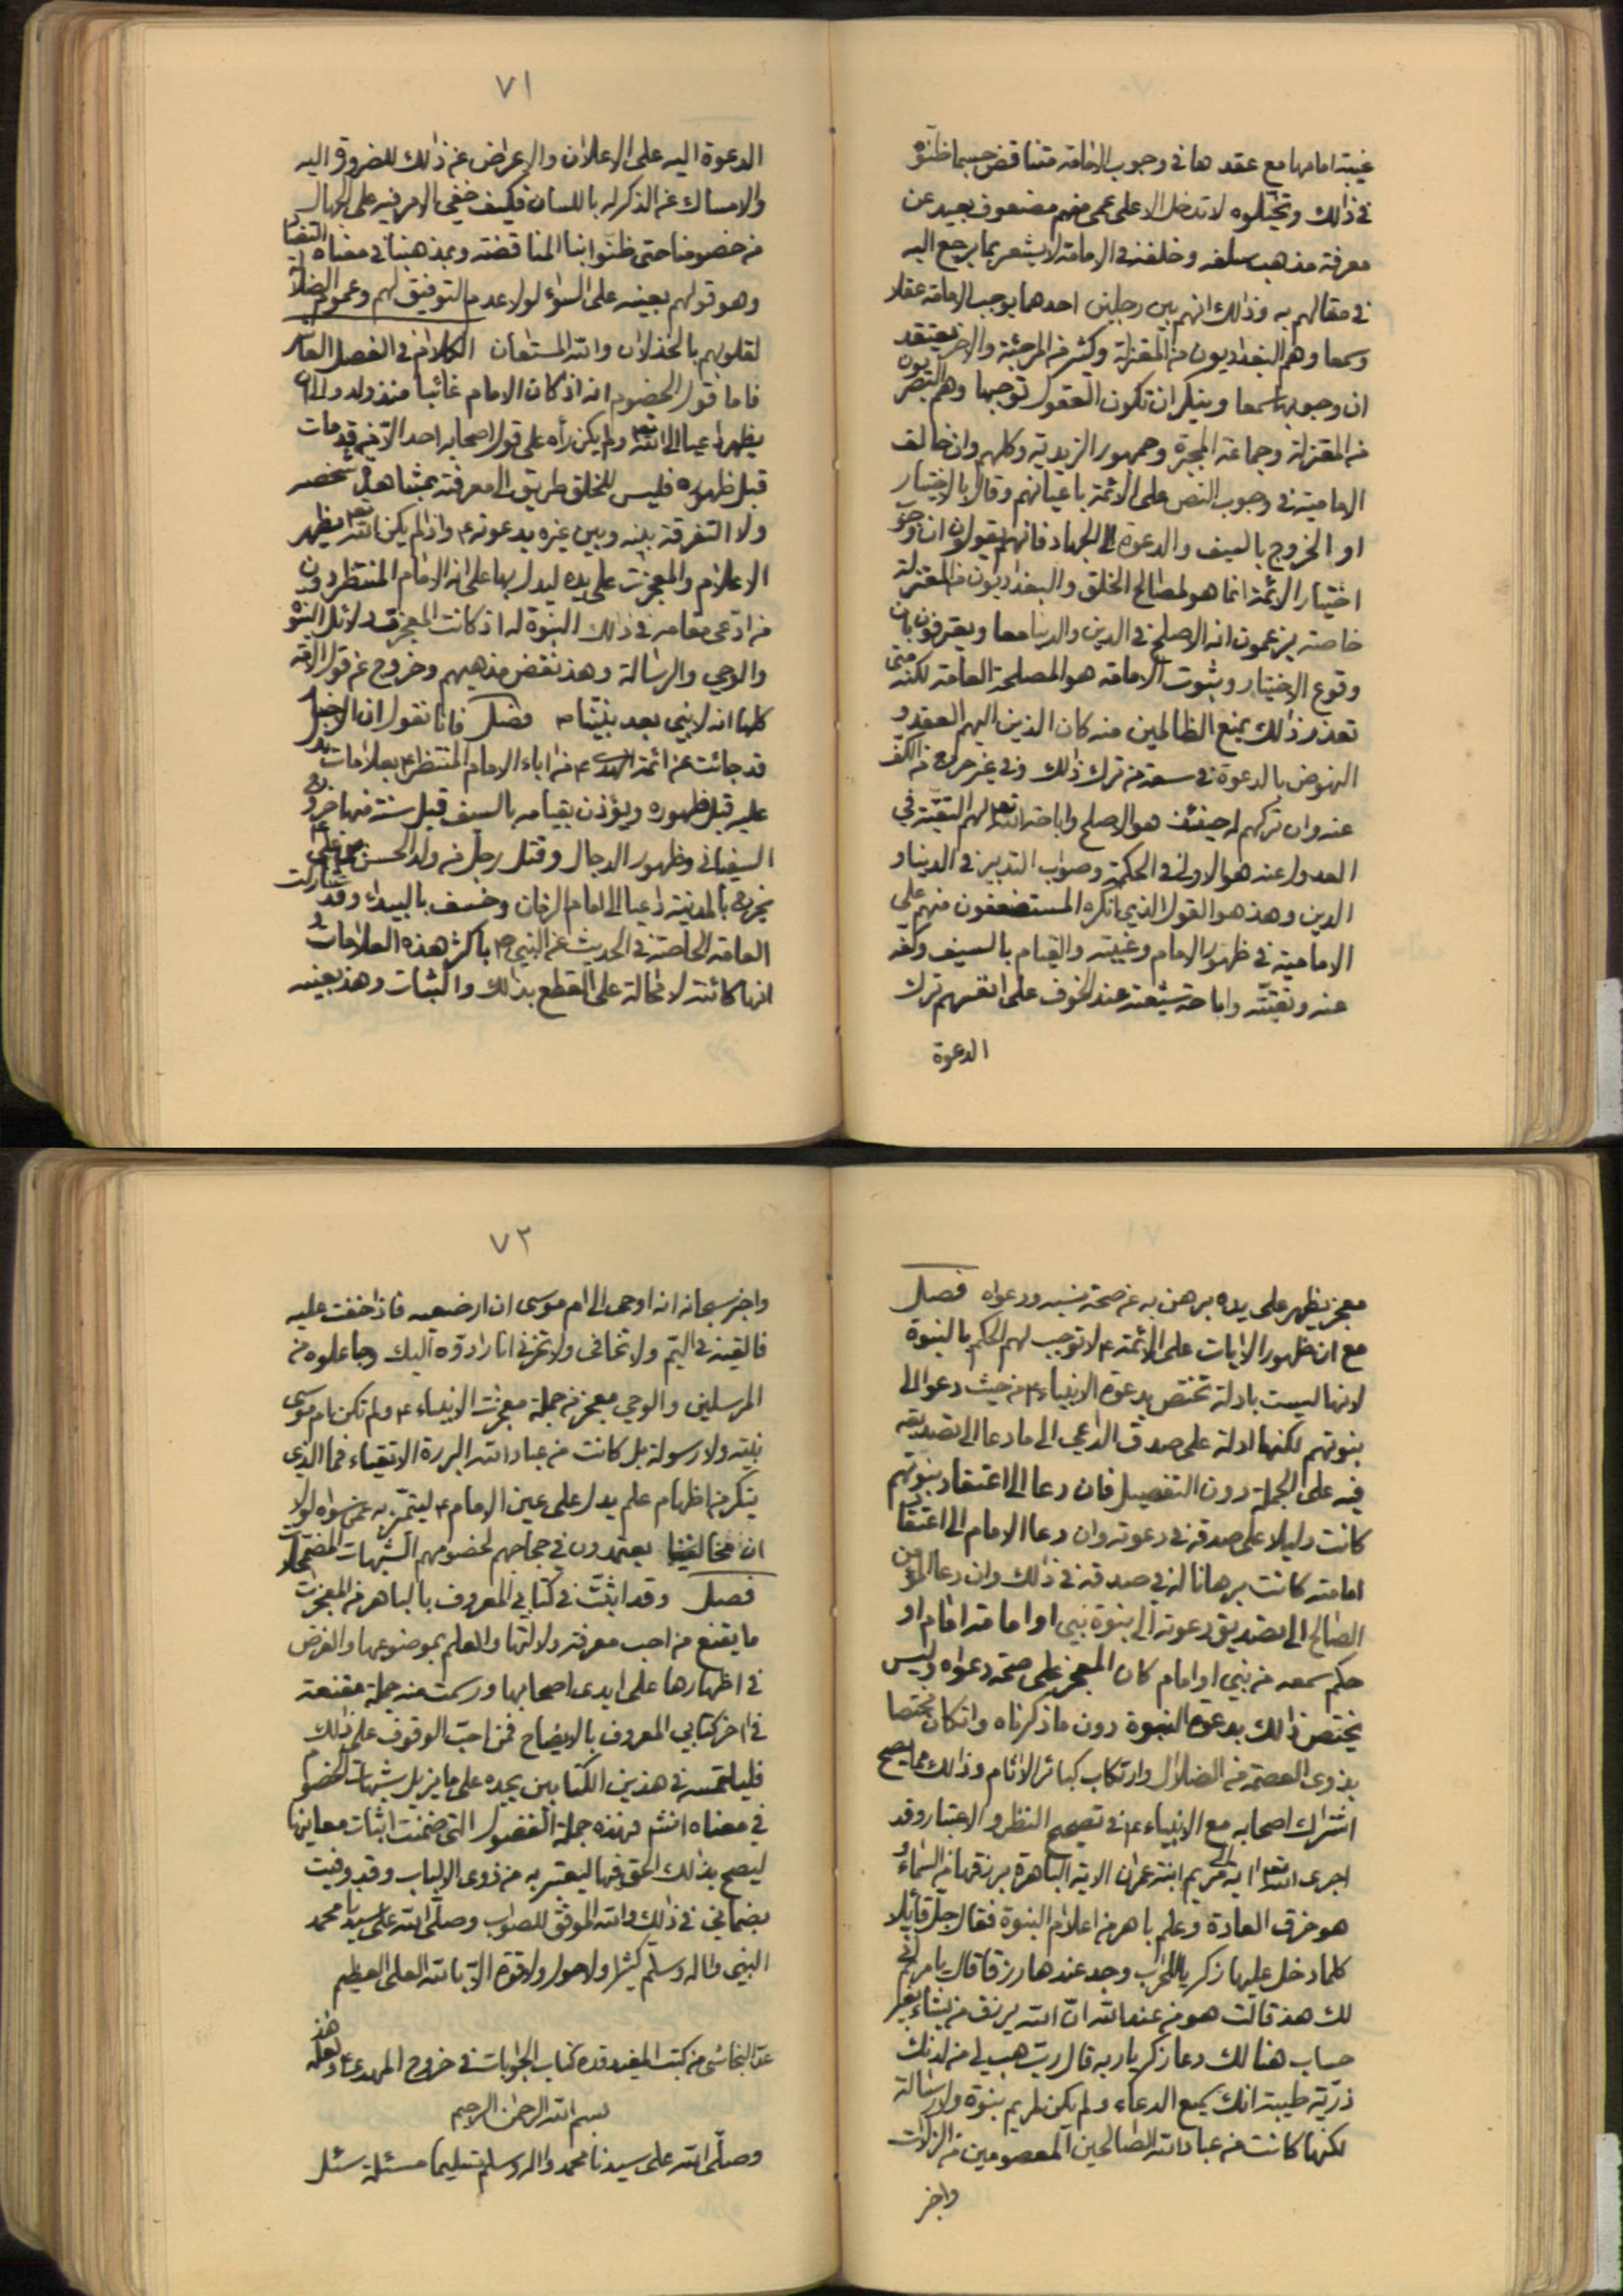 غيبة امامها مع عقدها في وجوب الامامة متناقض حسبما ظنوه
في ذلك وتخيّلوه لا تدخل الا على عمى منهم مضعوف بعيد عن
معرفة مذهب سلفه وخلفه في الامامة لا يشعر بما يرجع اليه
في مقالهم به وذلك انهم بين رجلين احدهما يوجب الامامة عقلا
وسمعا وهم البغداديون من المعتزلة وكثير من المرجئة والاخر يعتقد
ان وجوبها سمعا وينكر ان تكون العقول توجبها وهم البصريون
من المعتزلة وجماعة المجبرة وجمهور الزيدية وكلهم وان خالف
الامامية في وجوب النص على الائمة باعيانهم وقال بالاختيار
او الخروج بالسيف والدعوة الى الجهاد فانهم يقولون ان وجوب
اختيار الائمة انما هو لمصالح الخلق والبغداديون من المعتزلة
خاصة يزعمون انه الاصلح في الدين والدنيا معا ويعترفون بان
وقوع الاختيار وثبوت الامامة هو المصلحة العامة لكنه متى
تعذر ذلك بمنع الظالمين منه كان الذين اليهم العقد و
النهوض بالدعوة في سعة من ترك ذلك وفي غير حرج من الكف
عنه وان تركهم له حينئذ هو الاصلح واباحة الله تع لهم التقيّة في
العدول عنه هو الاولى في الحكمة وصواب التدبير في الدنيا و
الدين وهذ هو القول الذي انكره المستضعفون منهم على
الامامية في ظهور الامام وغيبته والقيام بالسيف وكفه
عنه وتقيّته واباحة شيعته عند الخوف على انفسهم ترك
الدعوة
٧١
الدعوة اليه على الاعلان والاعراض عن ذلك للضرورة اليه
والامساك عن الذكر له باللسان فكيف خفي الامر فيه على الجهال
من خصومنا حتى ظنوا بنا المناقضة وبمذهبنا في معناه التضاد
وهو قولهم بعينه على السواء لولا عدم التوفيق لهم وعموم الضلال
لقلوبهم بالخذلان والله المستعان الكلام في الفصل العاشر
فاما قول الخصوم انه اذ كان الامام غائبا منذ ولد والى ان
يظهر داعيا الى الله تع ولم يكن رأه على قول اصحابه احد الا من قد مات
قبل ظهوره فليس للخلق طريق الى معرفته بمشاهدة شخصه
ولا التفرقة بينه وبين غيره بدعوته ع واذا لم يكن الله تع يظهر
الاعلام والمعجزات على يده ليدل بها على انه الامام المنتظر دون
من ادعى مقامه في ذلك النبوة له اذ كانت المعجزت دلائل النبوة
والوحي والرسالة وهذ نقض مذهبهم وخروج عن قول الامة
كلها انه لا نبي بعد نبيّنا م فصل فانا نقول ان الاخبار
قد جائت عن ائمة الهدى ع من اباء الامام المنتظر ع بعلامات تدل
عليه قبل ظهوره ويؤذن بقيامه بالسيف قبل سنته منها خروج
السفياني وظهور الدجال وقتل رجل من ولد الحسن بن علي ع
يخرج بالمدينة داعيا الى امام الزمان وخسف بالبيداء وقد شاركت
العامة الخاصة في الحديث عن النبي ص باكثر هذه العلامات و
انها كائنة لا محالة على القطع بذلك والثبات وهذ بعينه
معجز يظهر على يده برهن به عن صحة نسبه ودعواه فصل
مع ان ظهور الايات على الائمة ع لا توجب لهم الحكم بالنبوة
لانها ليست بادلة تختص بدعوة الانبياء ع من حيث دعو الى
نبوتهم لكنها ادلة على صدق الداعي الى ما دعا الى تصديقه
فيه على الجملة دون التفصيل فان دعا الى اعتقاد نبوتهم
كانت دليلا على صدقه في دعوته وان دعا الامام الى اعتقاد
امامته كانت برهانا له في صدقه في ذلك وان دعا المؤمن
الصالح الى تصديق دعوته الى نبوة نبي او امامة امام او
حكم سمعه من نبي او امام كان المعجز على صحة دعواه وليس
يختص ذلك بدعوة النبوة دون ما ذكرناه وان كان مختصا
بذوى العصمة من الضلال وارتكاب كبائر الاثام وذلك مما يصح
اشتراك اصحابه مع الانبياء ع في صحيح النظر والاعتبار وقد
اجرى الله تع اية مريم ابنة عمران الاية الباهرة برزقها من السماء و
هو خرق العادة وعلم باهر من اعلام النبوة فقال جل قائلا
كلما دخل عليها زكريا المحراب وجد عندها رزقا قال يا مريم انى
لك هذ قالت هو من عند الله انّ الله يرزق من يشاء بغير
حساب هنالك دعا زكريا ربه قال رب هب لي من لدنك
ذريّة طيبة انك سميع الدعاء ولم يكن لمريم نبوة ولا رسالة
لكنها كانت من عباد الله الصالحين المعصومين من الزلات
واخبر
٧٢
واخبر سبحانه انه اوحى الى ام موسى ان ارضعيه فاذا خفت عليه
فالقيه في اليم ولا تخافى ولا تحزنى انا رادوه اليك وجاعلوه من
المرسلين والوحي معجز من جملة معجزات الانبياء ع ولم تكن ام موسى
نبيّة ولا رسولة بل كانت من عباد الله البررة الاتقياء فما الذي
ينكر من اظهار علم يدل على عين الامام ع ليتميّز به عمن سواه لولا
ان مخالفينا يعتمدون في حجاجهم لخصومهم الشبهات المضمحلات
فصل وقد اثبتّ في كتابي المعروف بالباهر من المعجزات
ما يقنع من احب معرفة دلالتها والعلم بموضوعها والغرض
في اظهارها على ايدى اصحابها ورسمت منه جملة مقنعة
في اخر كتابي المعروف بالايضاح فمن احبّ الوقوف على ذلك
فليلتمسه في هذين الكتابين يجده على ما يزيل شبهات الخصوم
في معناه انشم فهذه جملة الفصول التي ضمنت اثبات معاينها
ليصح بذلك الحق فيها ليعتبر به من ذوى الالباب وقد وفيت
بضماني في ذلك والله الموفق للصواب وصلّى الله على سيدنا محمد
النبي واله وسلم كثيرا ولا حول ولا قوة الا بالله العلى العظيم
عدّ النجاشى من كتب المفيد قده كتاب الجوابات في خروج المهدي ع ولعله هذ
بسم الله الرحمن الرحيم
وصلّى الله على سيدنا محمد واله وسلم تسليما مسئلة سئل